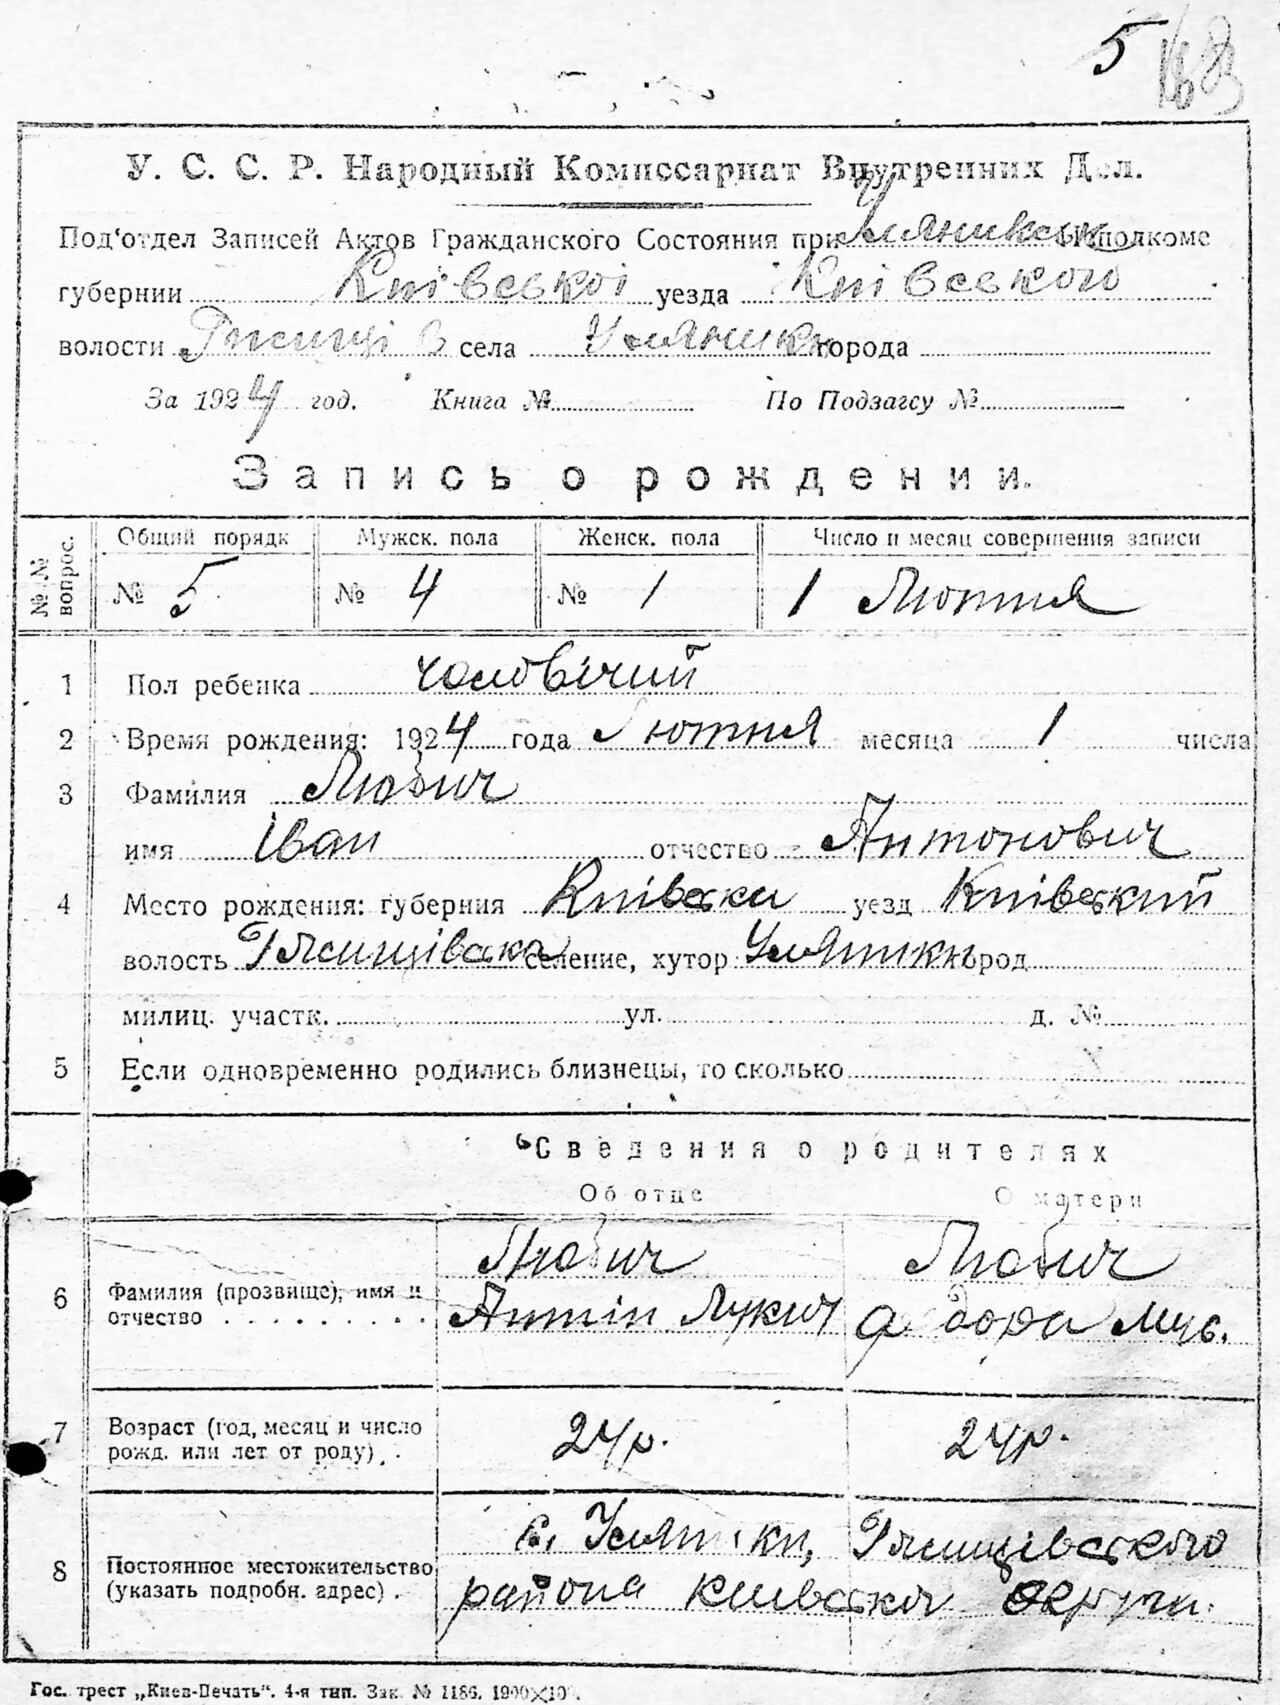 5 183
У. С. С. Р. Народный Комиссариат Внутренних Дел.
Под'отдел Записей Актов Гражданского Состояния при Уляникськ Исполкоме
губернии Київської уезда Київського
волости Ржищів села Уляники города
За 1924 год. Книга № По Подзагсу №
Запись о рождении.
№№ вопрос. Общий порядк Мужск. пола Женск. пола Число и месяц совершения записи
№ 5 № 4 № 1 1 Лютня
1 Пол ребенка чоловічий
2 Время рождения: 1924 года Лютня месяца 1 числа
3 Фамилия Любич
имя Іван отчество Антонович
4 Место рождения: губерния Київска уезд Київский
волость Ржищівска селение, хутор Уляники город
милиц. участк. ул. д. №
5 Если одновременно родились близнецы, то сколько
Сведения о родителях
Об отце О матери
Любич Любич
6 Фамилия (прозвище), имя и
отчество . . . . . . . . . Антін Лукич дора
7 Возраст (год, месяц и число
рожд. или лет от роду) . . 24 р. 24 р.
с. Уляники, Ржищівского
8 Постоянное местожительство
(указать подробн. адрес) . района Київскої округи.
Гос. трест „Киев-Печать". 4-я тип. Зак. № 1186. 1900×10